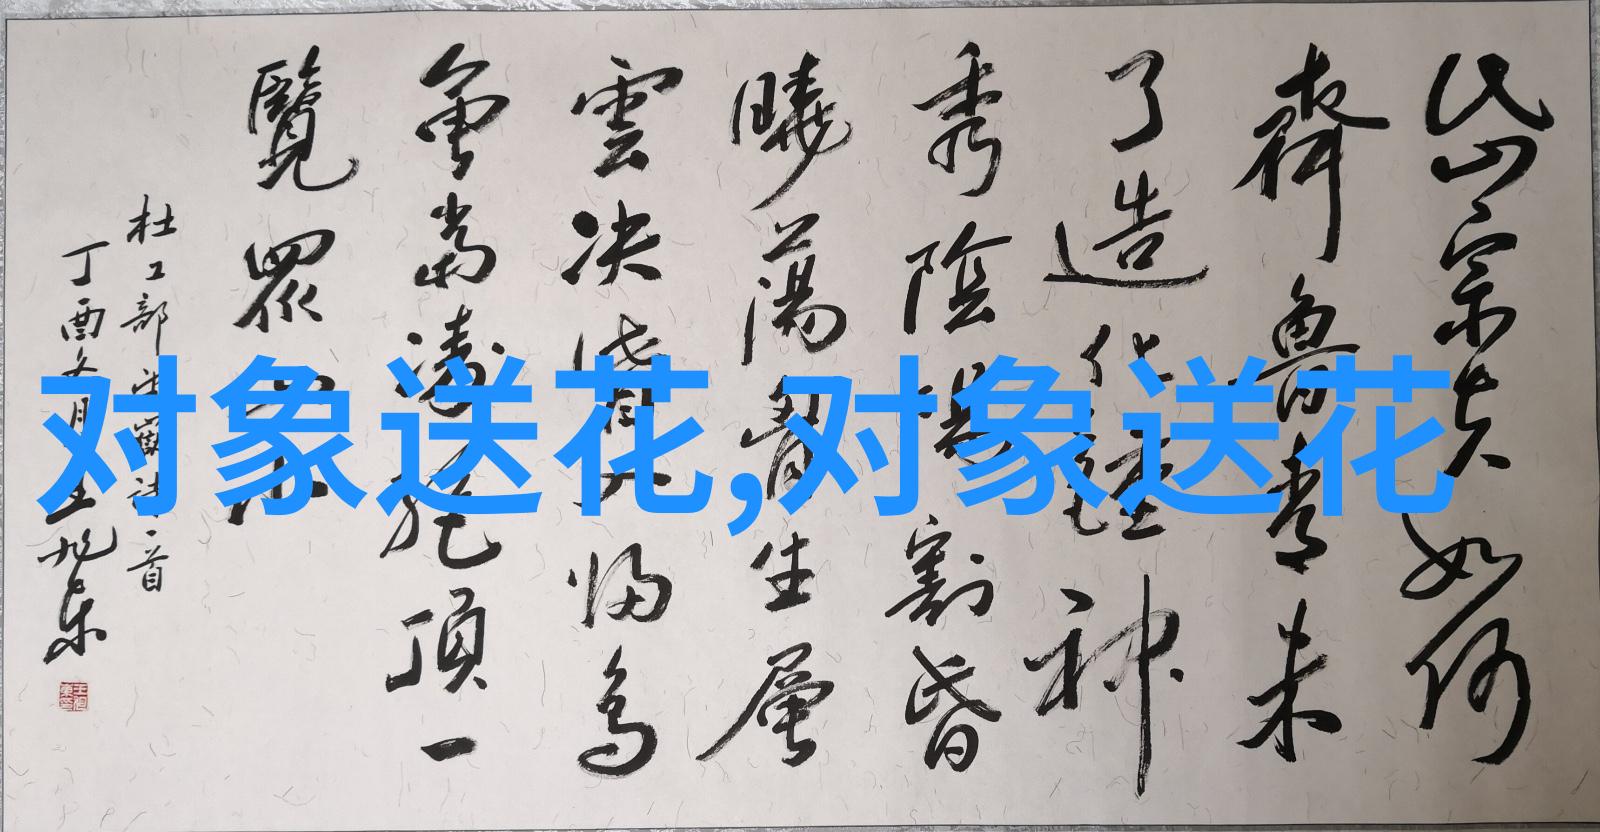 岱宗夫如何
齊魯青未
了造化鍾神
秀陰陽割昏
曉蕩胸生層
雲决眥入歸鳥
會當凌絶頂一
覽眾山小
杜工部望嶽詩一首
丁酉月王旭东
对象送花,对象送花